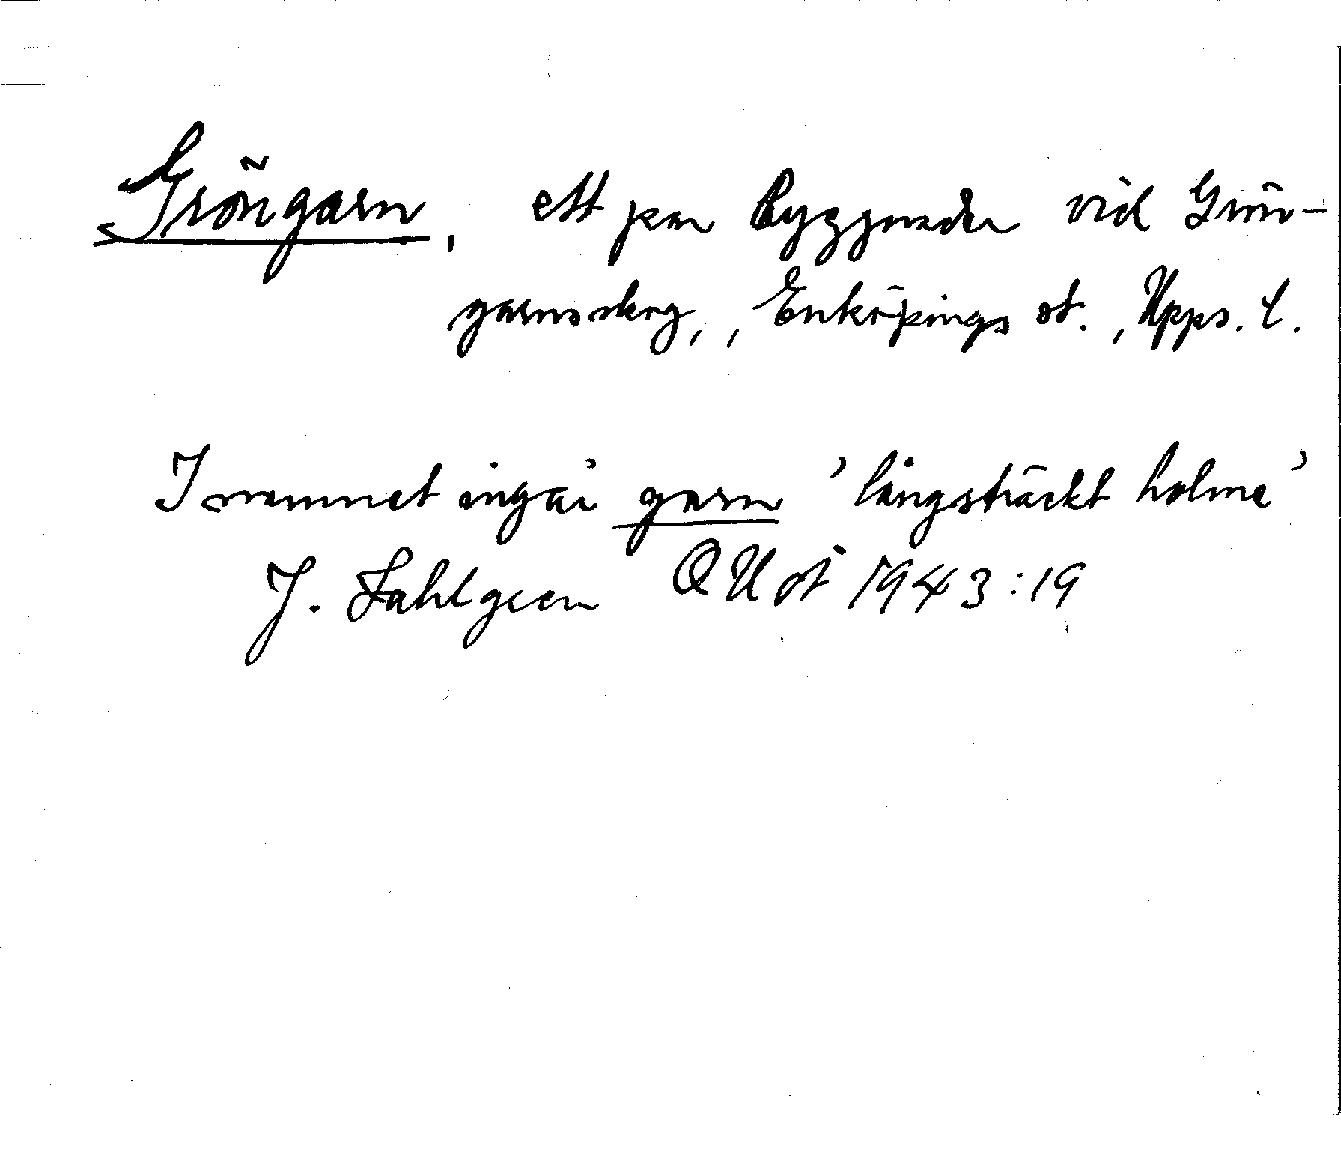 Gröngarn, ett par byggnader vid Grön-
garnsskog, , Enköpings st., Upps. l.
I namnet ingår garn 'långsträckt holme'
J. Sahlgren OUSt 1943:19